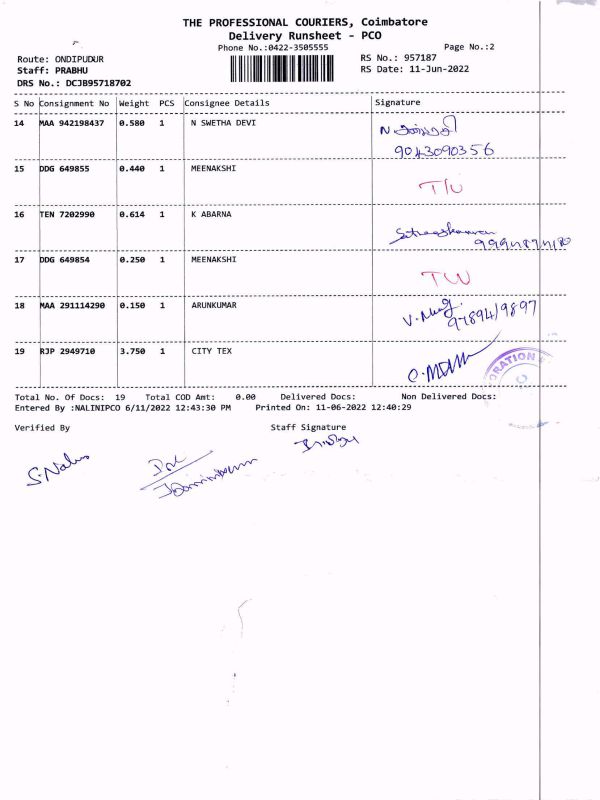 THE PROFESSIONAL COURIERS, Coimbatore
Delivery Runsheet - PCO
Phone No.:0422-3505555
Page No.:2
Route: ONDIPUDUR
RS No.: 957187
Staff: PRABHU
RS Date: 11-Jun-2022
DRS No.: DCJB95718702
S No Consignment No Weight PCS Consignee Details Signature
14 MAA 942198437 0.580 1 N SWETHA DEVI
9043090356
15 DDG 649855 0.440 1 MEENAKSHI
16 TEN 7202990 0.614 1 K ABARNA
17 DDG 649854 0.250 1 MEENAKSHI
18 MAA 291114290 0.150 1 ARUNKUMAR
19 RJP 2949710 3.750 1 CITY TEX
Total No. Of Docs: 19 Total COD Amt: 0.00 Delivered Docs: Non Delivered Docs:
Entered By :NALINIPCO 6/11/2022 12:43:30 PM Printed On: 11-06-2022 12:40:29
Verified By Staff Signature